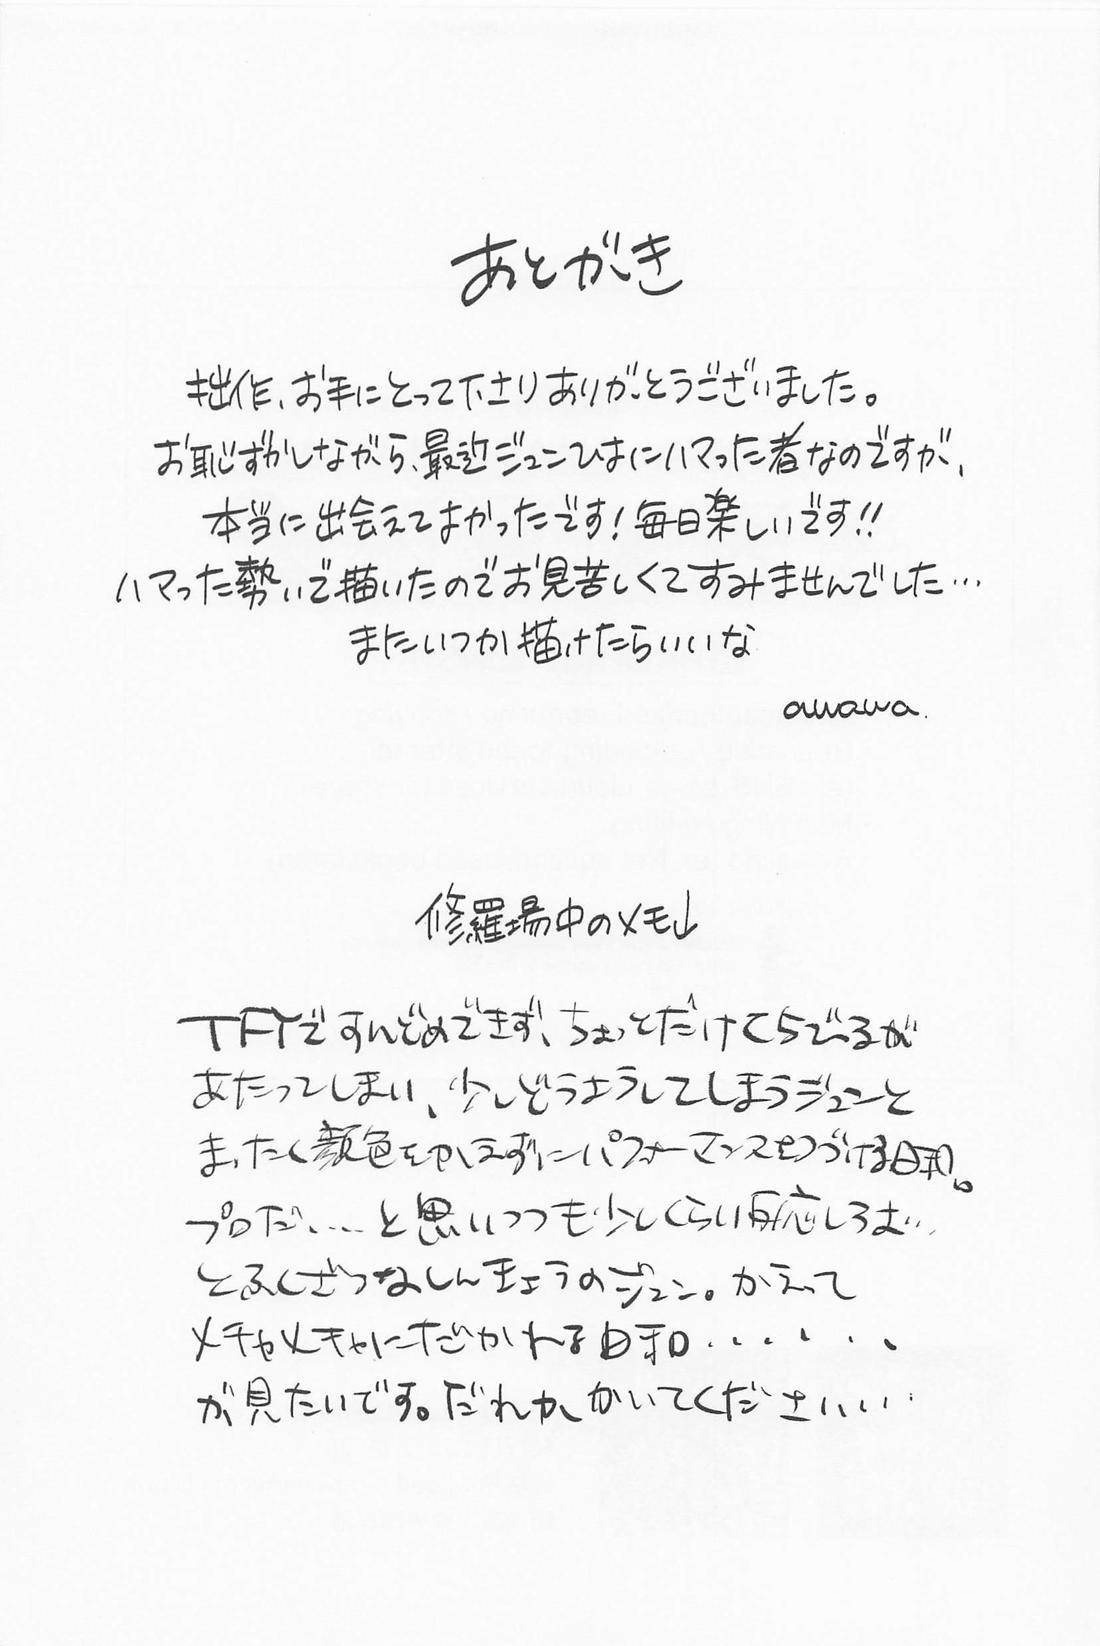 あとがき
拙作、お手にとって下さりありがとうございました。
お恥ずかしながら、最近ジュンひよにハマった者なのですが、
本当に出会えてよかったです！毎日楽しいです!!
ハマった勢いで描いたのでお見苦しくてすみませんでした…
またいつか描けたらいいな
awawa.
修羅場中のメモ↓
TFYですんどめできず、ちょっとだけくちびるが
あたってしまい、少しどうようしてしまうジュンと
まったく顔色をかえずにパフォーマンスをつづける日和。
プロだ……と思いつつも少しくらい反応しろよ…
とふくざつなしんきょうのジュン。かえって
メチャメチャにだかれる日和・・・・・・
が見たいです。だれかかいてくださいいい…